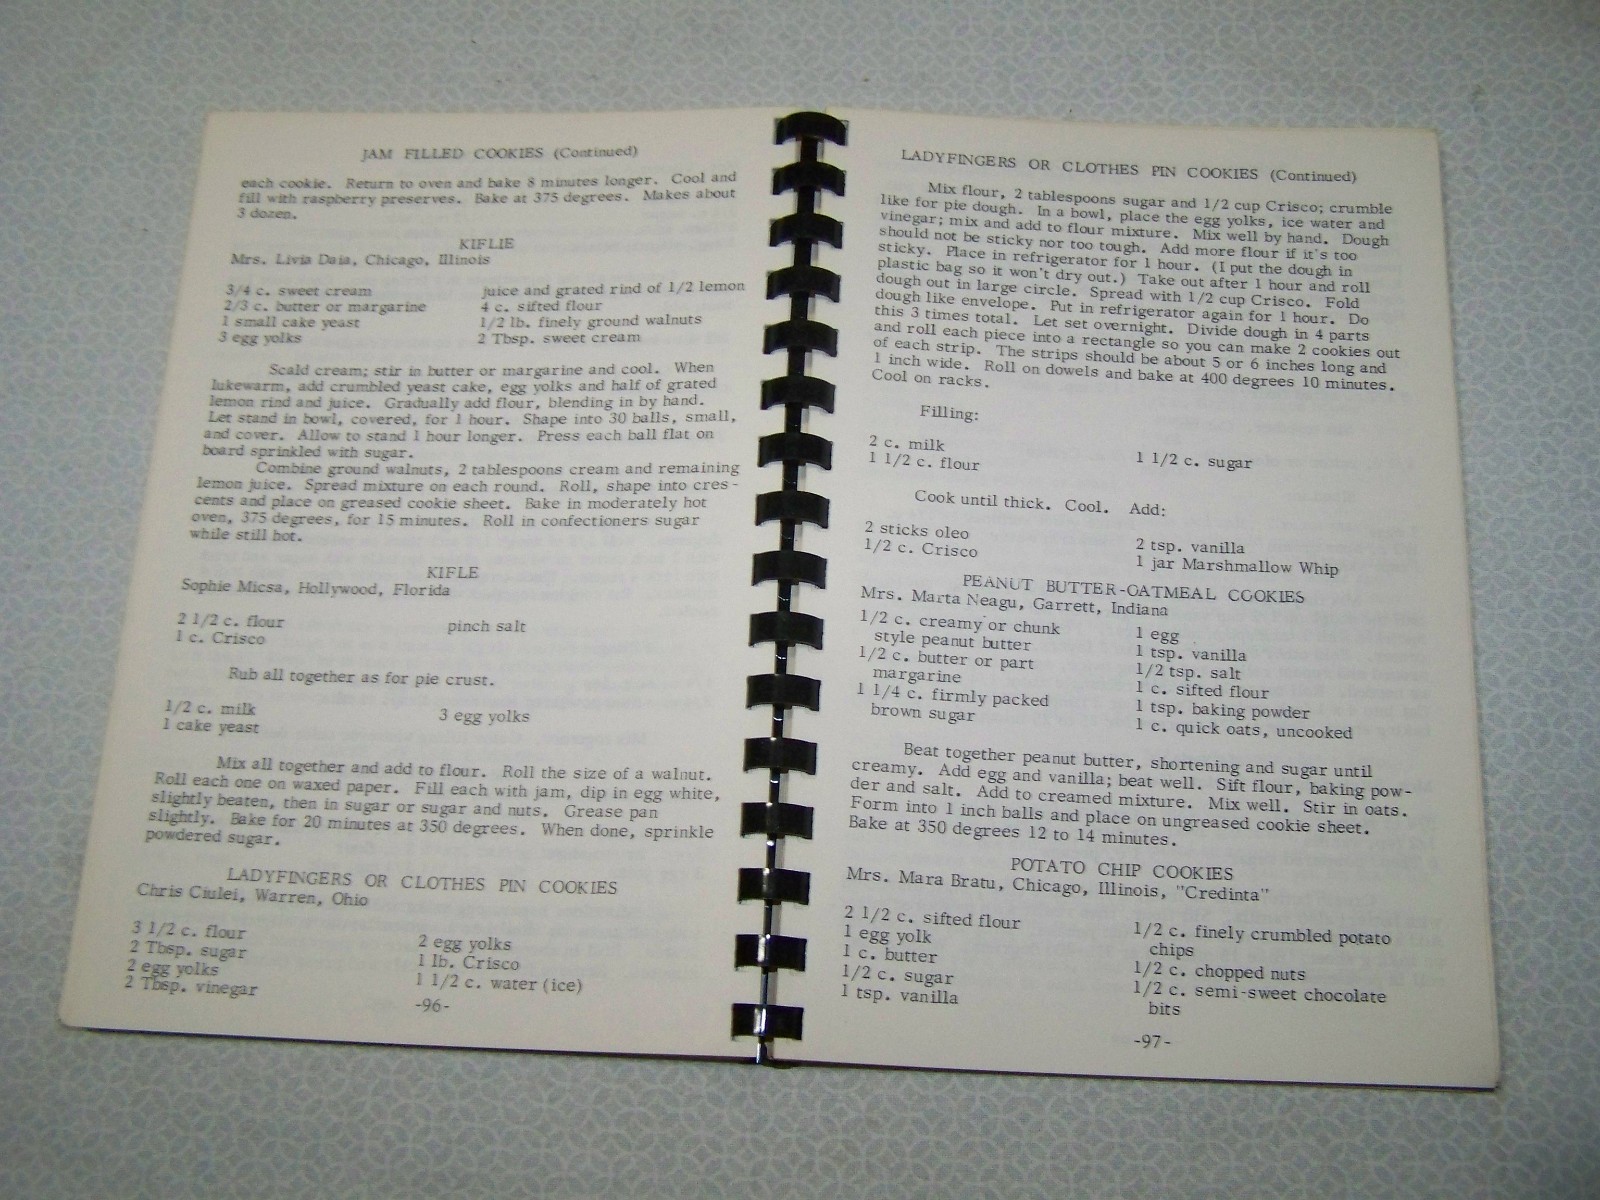 JAM FILLED COOKIES (Continued)
each cookie. Return to oven and bake 8 minutes longer. Cool and
fill with raspberry preserves. Bake at 375 degrees. Makes about
3 dozen.
KIFLIE
Mrs. Livia Daia, Chicago, Illinois
3/4 c. sweet cream
2/3 c. butter or margarine
1 small cake yeast
3 egg yolks
juice and grated rind of 1/2 lemon
4 c. sifted flour
1/2 lb. finely ground walnuts
2 Tbsp. sweet cream
Scald cream; stir in butter or margarine and cool. When
lukewarm, add crumbled yeast cake, egg yolks and half of grated
lemon rind and juice. Gradually add flour, blending in by hand.
Let stand in bowl, covered, for 1 hour. Shape into 30 balls, small,
and cover. Allow to stand 1 hour longer. Press each ball flat on
board sprinkled with sugar.
Combine ground walnuts, 2 tablespoons cream and remaining
lemon juice. Spread mixture on each round. Roll, shape into cres-
cents and place on greased cookie sheet. Bake in moderately hot
oven, 375 degrees, for 15 minutes. Roll in confectioners sugar
while still hot.
KIFLE
Sophie Micsa, Hollywood, Florida
2 1/2 c. flour
1 c. Crisco
pinch salt
Rub all together as for pie crust.
1/2 c. milk
1 cake yeast
3 egg yolks
Mix all together and add to flour. Roll the size of a walnut.
Roll each one on waxed paper. Fill each with jam, dip in egg white,
slightly beaten, then in sugar or sugar and nuts. Grease pan
slightly. Bake for 20 minutes at 350 degrees. When done, sprinkle
powdered sugar.
LADYFINGERS OR CLOTHES PIN COOKIES
Chris Ciulei, Warren, Ohio
3 1/2 c. flour
2 Tbsp. sugar
2 egg yolks
2 Tbsp. vinegar
2 egg yolks
1 lb. Crisco
1 1/2 c. water (ice)
-96-
LADYFINGERS OR CLOTHES PIN COOKIES (Continued)
Mix flour, 2 tablespoons sugar and 1/2 cup Crisco; crumble
like for pie dough. In a bowl, place the egg yolks, ice water and
vinegar; mix and add to flour mixture. Mix well by hand. Dough
should not be sticky nor too tough. Add more flour if it's too
sticky. Place in refrigerator for 1 hour. (I put the dough in
plastic bag so it won't dry out.) Take out after 1 hour and roll
dough out in large circle. Spread with 1/2 cup Crisco. Fold
dough like envelope. Put in refrigerator again for 1 hour. Do
this 3 times total. Let set overnight. Divide dough in 4 parts
and roll each piece into a rectangle so you can make 2 cookies out
of each strip. The strips should be about 5 or 6 inches long and
1 inch wide. Roll on dowels and bake at 400 degrees 10 minutes.
Cool on racks.
Filling:
2 c. milk
1 1/2 c. flour
1 1/2 c. sugar
Cook until thick. Cool. Add:
2 sticks oleo
1/2 c. Crisco
2 tsp. vanilla
1 jar Marshmallow Whip
PEANUT BUTTER-OATMEAL COOKIES
Mrs. Marta Neagu, Garrett, Indiana
1/2 c. creamy or chunk
style peanut butter
1/2 c. butter or part
margarine
1 1/4 c. firmly packed
brown sugar
1 egg
1 tsp. vanilla
1/2 tsp. salt
1 c. sifted flour
1 tsp. baking powder
1 c. quick oats, uncooked
Beat together peanut butter, shortening and sugar until
creamy. Add egg and vanilla; beat well. Sift flour, baking pow-
der and salt. Add to creamed mixture. Mix well. Stir in oats.
Form into 1 inch balls and place on ungreased cookie sheet.
Bake at 350 degrees 12 to 14 minutes.
POTATO CHIP COOKIES
Mrs. Mara Bratu, Chicago, Illinois, "Credinta"
2 1/2 c. sifted flour
1 egg yolk
1 c. butter
1/2 c. sugar
1 tsp. vanilla
1/2 c. finely crumbled potato
chips
1/2 c. chopped nuts
1/2 c. semi-sweet chocolate
bits
-97-